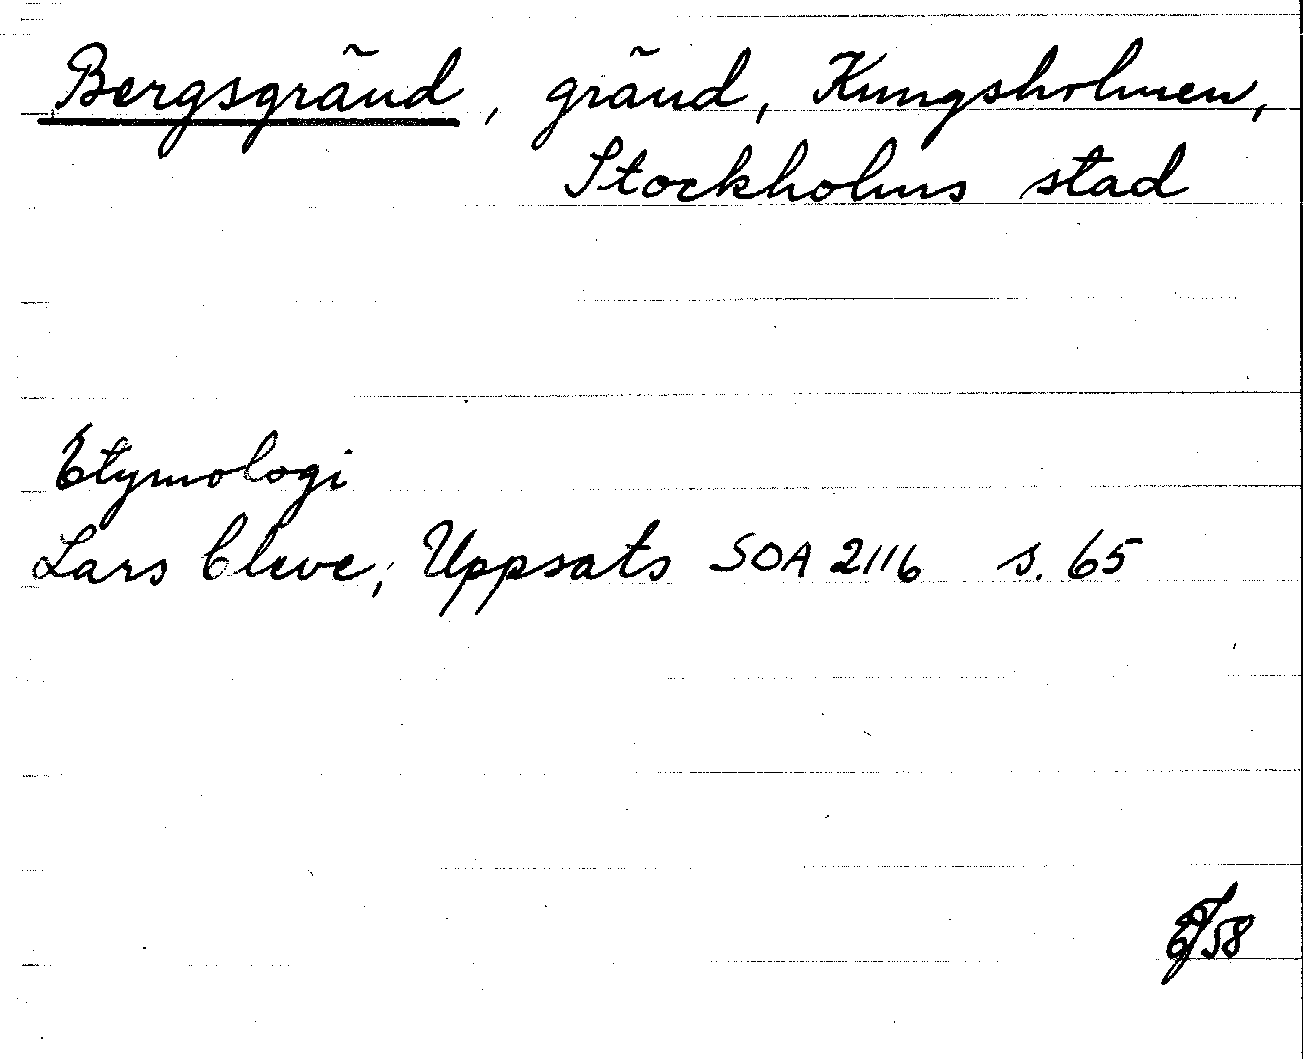 Bergsgränd, gränd, Kungsholmen,
Stockholms stad
Etymologi
Lars Cleve, Uppsats SOA 2116 s. 65